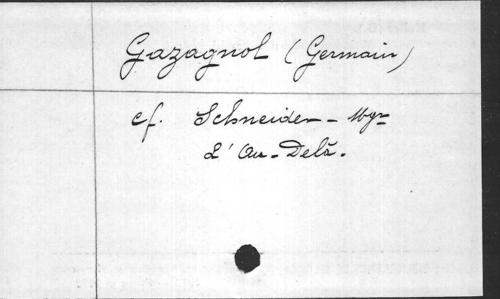 Gazagnol (Germain)
cf. Schneider - Mgr
L'Au-Delà.